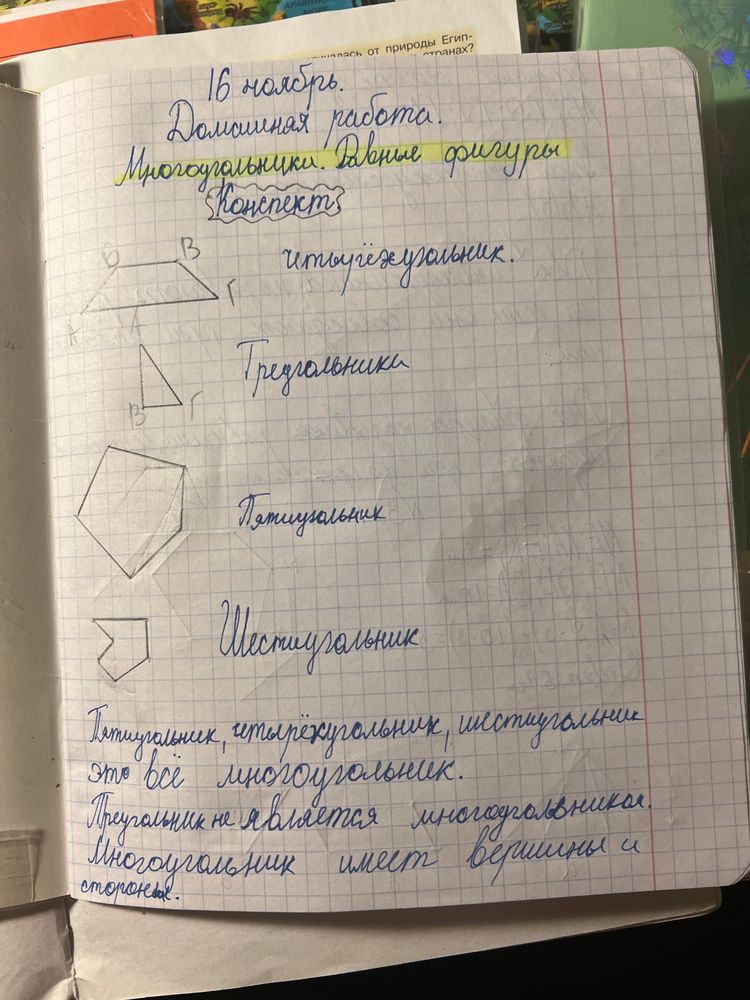 АРАВИЙСКОЕ
МОРЕ
от природы Егип-
странах?
16 ноябрь.
Домашная работа.
Многоугольники. Равные фигуры
Конспект.
Б В
четырёхугольник.
А Г
А
Треугольники
В Г
Пятиугольник
Шестиугольник
Пятиугольник, четырёхугольник, шестиугольник
это всё многоугольник.
Треугольник не является многоугольником.
Многоугольник имеет вершины и
стороны.